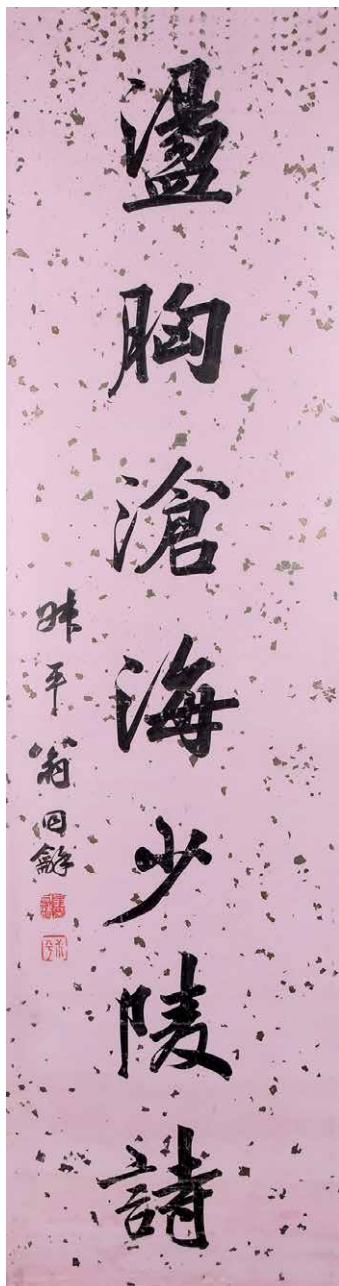 盪胸滄海少陵詩
叔平翁同龢